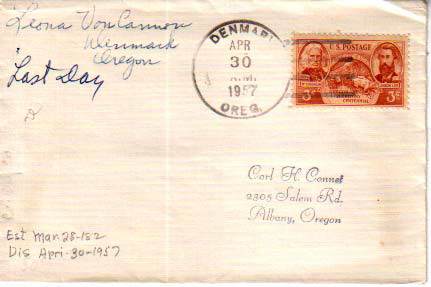 Leona Von Cannon
Denmark
Oregon
Last Day
DENMARK
APR
30
A.M.
1957
OREG.
U.S. POSTAGE
3¢
3¢
CENTENNIAL
Carl H. Connet
2305 Salem Rd.
Albany, Oregon
Est Mar. 28-182
Dis Apri-30-1957